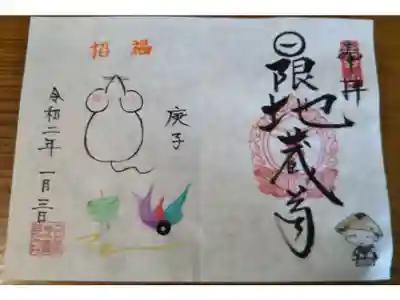 奉拝
日限地蔵尊
招福
庚子
令和二年 一月三日